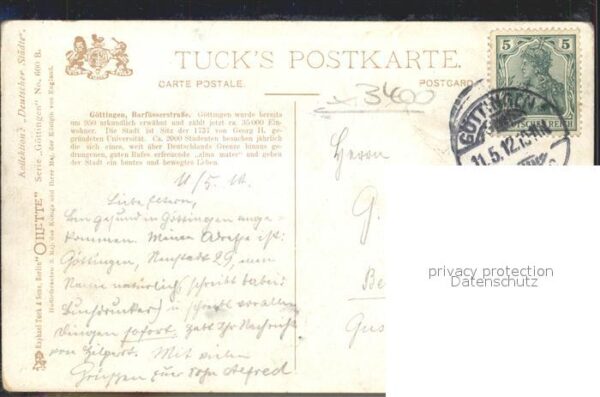 TUCK'S POSTKARTE.
CARTE POSTALE.
POSTCARD
3400
Göttingen, Barfüsserstraße. Göttingen wurde bereits
um 950 urkundlich erwähnt und zählt jetzt ca. 35000 Ein-
wohner. Die Stadt ist Sitz der 1737 von Georg II. ge-
gründeten Universität. Ca. 2000 Studenten besuchen jährlich
die sich eines, weit über Deutschlands Grenze hinaus ge-
drungenen, guten Rufes erfreuende „alma mater" und geben
der Stadt ein buntes und bewegtes Leben.
Kollektion „Deutscher Städte"
Serie „Göttingen" No. 660 B.
Raphael Tuck & Sons, Berlin „OILETTE"
Hoflieferanten S. Maj. des Königs und Ihrer Maj. der Königin von England.
5 5
DEUTSCHES REICH
GÖTTINGEN
11.5.12.
11/5.
Liebe Eltern,
Bin gesund in Göttingen ange-
kommen. Meine Adresse ist:
Göttingen, Neustadt 29, mein
Name natürlich, schreibt dabei:
Buchdrucker, schreibt vor allen
Dingen sofort. Habt Ihr Nachricht
von Hilpert. Mit vielen
Grüßen Euer Sohn Alfred
Herrn
G.
Be
Gus
privacy protection
Datenschutz